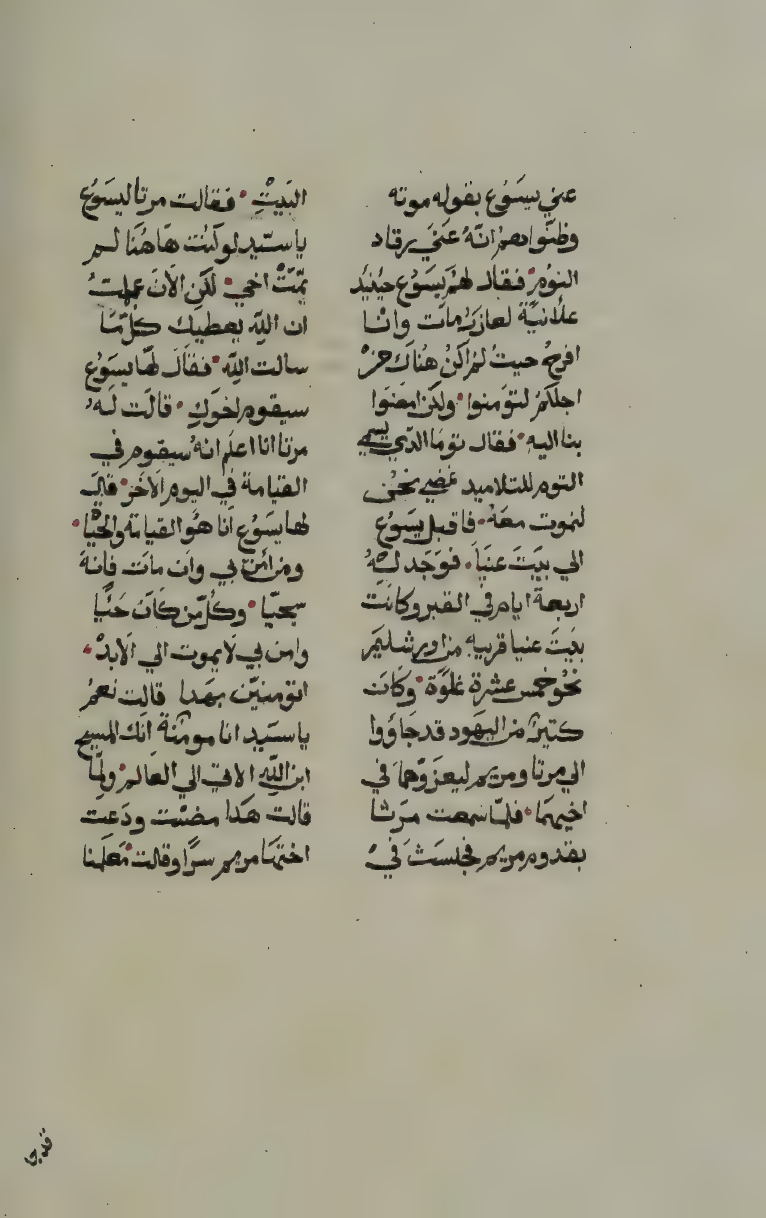 عني يسَوُع بقوله موته
وظنّوا هم انّهُ عَنَيَ برقاد
النوُم فقال لهُم يسَوُع حينيدٍ
علانيّة لعازر مات وانا
افرحُ حيثُ لم اكنُ هُناك من
اجلكم لتوَمنوا ولكن امضوا
بنا اليه فقال توما الدّي يسمي
التوم للتلاميد نمضي نحن
لنموت معَهُ فاقبل يسَوُع
الي بيَتَ عنَيا فوَجَد لهُ
اربعة ايام في القبر وكانت
بيَتَ عنيا قريبه من اورشليم
نحو خمس عشرة غلوَة وكانَت
كتيرٌ من اليَهود قد جاؤوا
الي مرتا ومريم ليعزوّهما في
اخيهما فلمّا سمعت مرَتا
بقدوم مريم فجلسَت في
البَيتِ فقالت مرتا ليسَوُع
ياسَيّد لو كنُت هَاهُنا لم
يمَت اخي لكن الان علمتُ
ان اللّه يعطيك كلمّا
سالت اللّه فقال لهَا يسَوُع
سيقوم اخوَكِ قالَت لهُ
مرتا انا اعلم انهُ سيقوم في
القيامة في اليوم الاخر قال
لها يسَوُع انا هُو القيامه والحيَا
ومن امن بي وان مات فانهُ
سيحيّا وكُل من كان حيّا
وامن بي لا يموت الي الابد
اتومنيَن بهَدا قالت نعم
ياسيَد انا مومَنة انك المسيح
ابن اللّه الاتي الي العالم ولمّا
قالت هَدا مضت ودَعت
اختهَا مريم سرًا وقالت مَعلمنا
قد جا